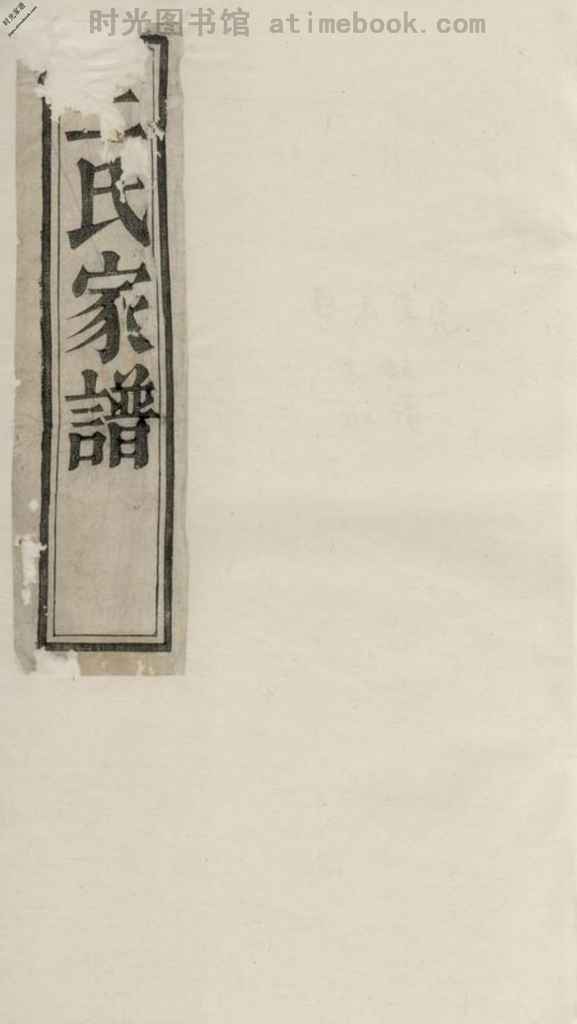 时光图书馆 atimebook.com
时光家谱
氏家譜